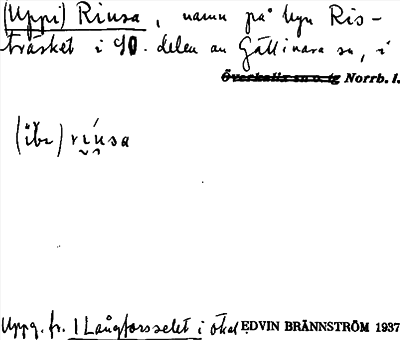 (Uppi) Riusa, namn på byn Ris-
träsket i NO. delen av Gällivare sn, i
Överkalix sn o. tg Norrb. l.
(ibə) riusa
Uppg. fr. 1 Långforsselet i ökal EDVIN BRÄNNSTRÖM 1937